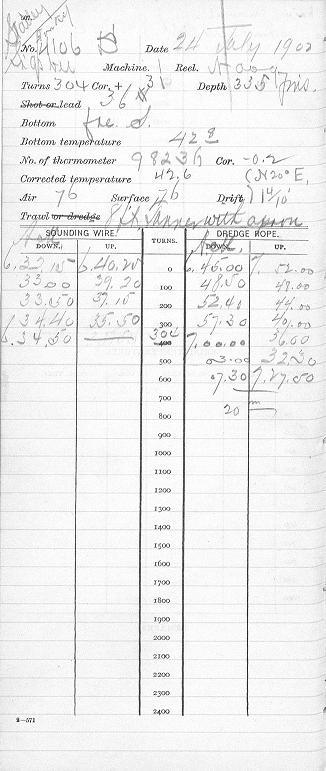 No. 4106 Date 24 July 1902
Machine. 1 Reel.
Turns 304 Cor. + 31 Depth 335 fms.
Shot or lead 36 #
Bottom fne. S.
Bottom temperature 42.8
No. of thermometer 98236 Cor. -0.2
Corrected temperature 42.6 (N20°E,
Air 76 Surface 76 Drift 1 4/10'
Trawl or dredge 8 ft Tanner with apron
SOUNDING WIRE. TURNS. DREDGE ROPE.
DOWN. UP. DOWN. UP.
6.32.15 6.40.25 0 6.45.00 7.52.00
33.00 39.20 100 48.50 48.00
33.50 37.15 200 52.40 44.00
6.34.40 35.50 300 57.30 40.00
6.34.50 304 400 7.00.00 36.00
500 03.00 32.30
600 07.30 7.27.50
700 20 m
800
900
1000
1100
1200
1300
1400
1500
1600
1700
1800
1900
2000
2100
2200
2300
2400
2—571